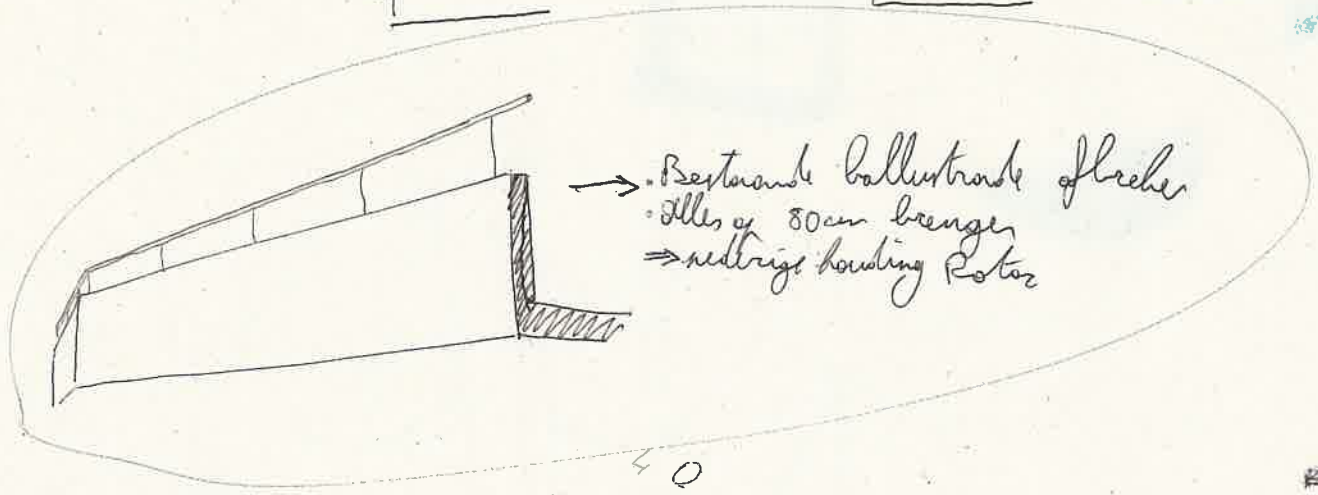 . Bestaande ballustrade afbreken
. Alles op 80cm brengen
⇒ nederige houding Rotor